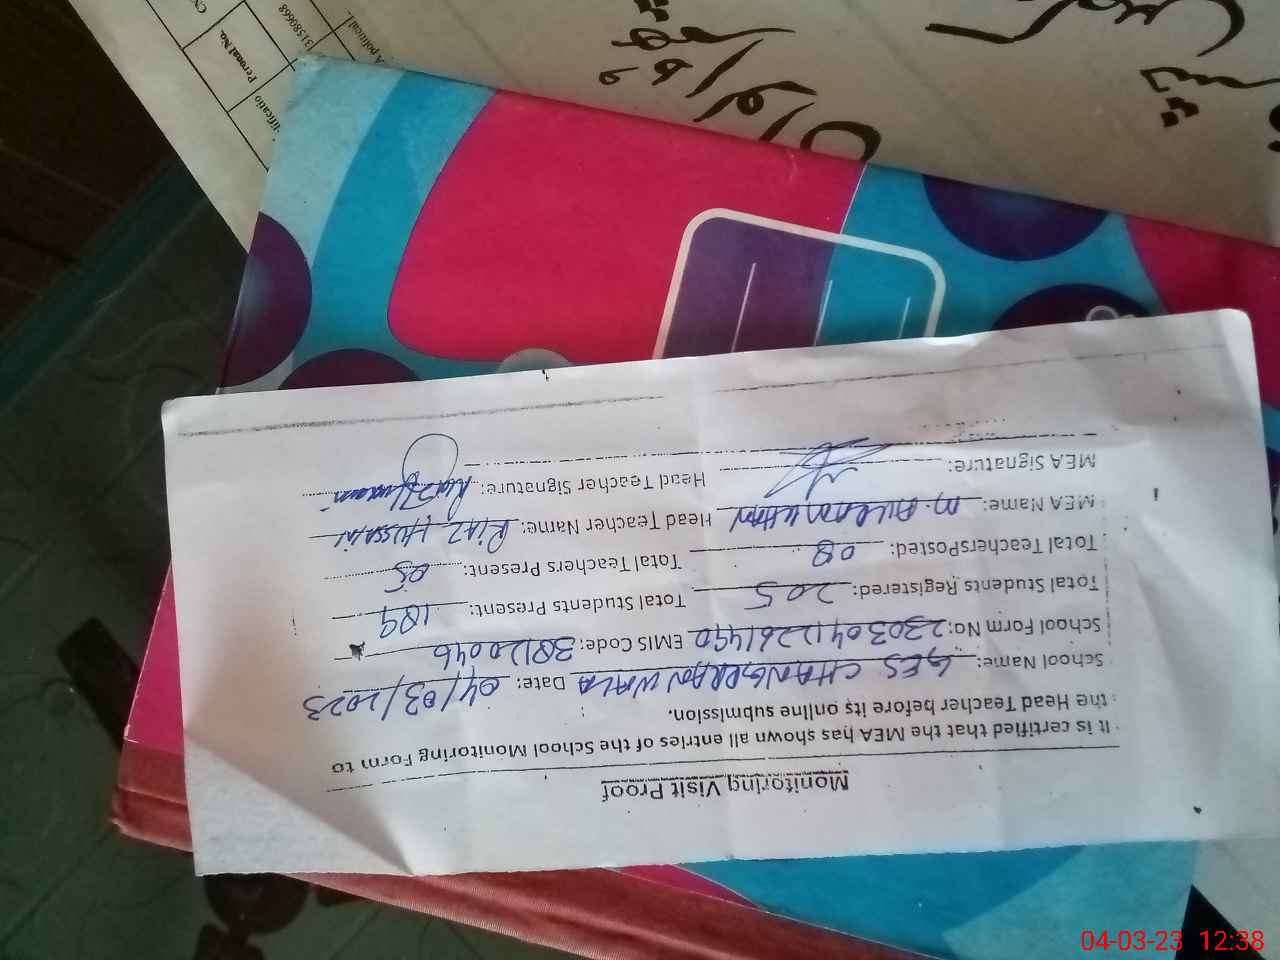 Monitoring Visit Proof
It is certified that the MEA has shown all entries of the School Monitoring Form to
the Head Teacher before its online submission.
School Name: GES CHANGRRAN WALA Date: 04/03/2023
School Form No: 23030412261490 EMIS Code: 38120046
Total Students Registered: 205 Total Students Present: 189
Total TeachersPosted: 08 Total Teachers Present: 05
MEA Name: Head Teacher Name: RIAZ HUSSAIN
MEA Signature: Head Teacher Signature: Riaz Hussain
Peronal No.
31580668
A political
04-03-23 12:38